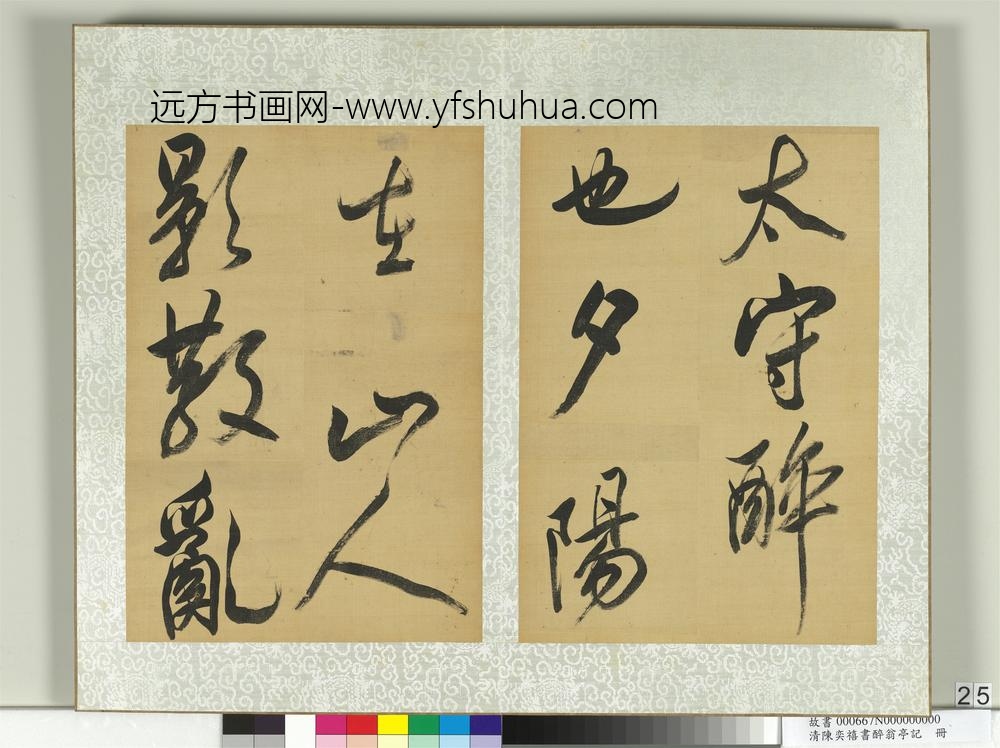 远方书画网-www.yfshuhua.com
太守醉
也夕陽
在山人
影散亂
25
故書 000667N000000000
清陳奕禧書醉翁亭記 冊